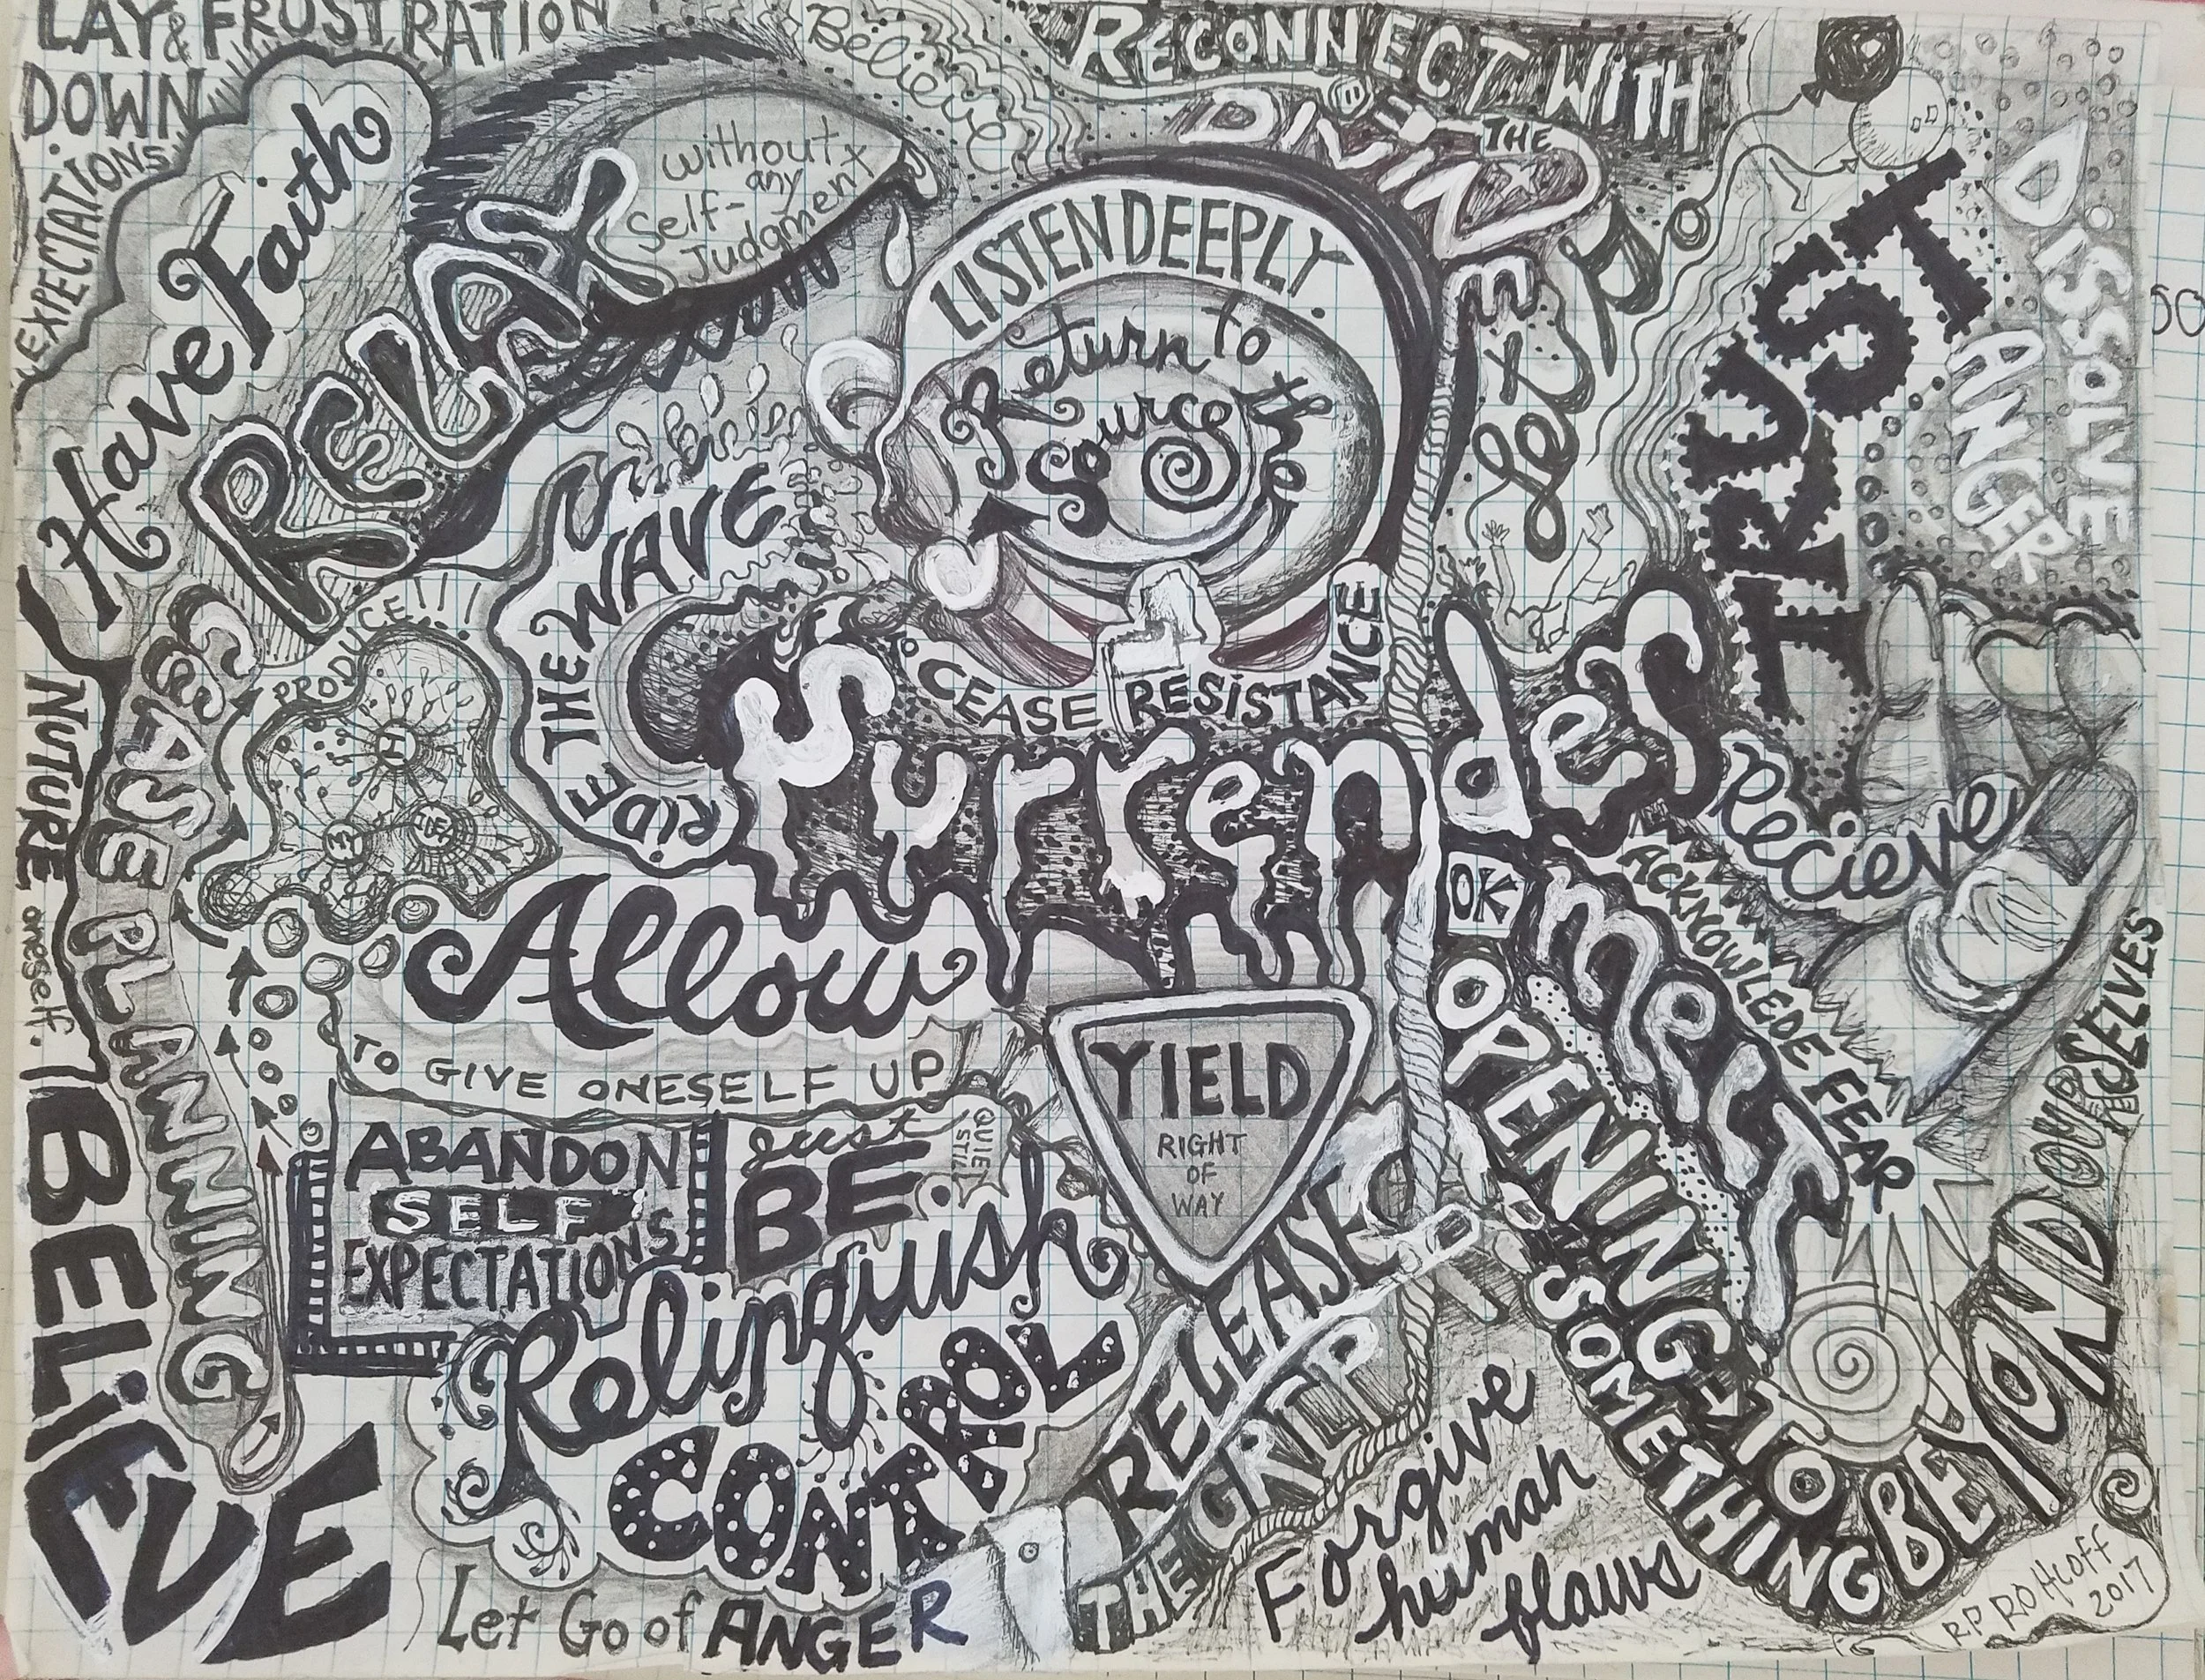 LAY & FRUSTRATION
DOWN
EXPECTATIONS
Have Faith
RELAX
without
any
Self-
Judgment
Believe
RECONNECT WITH
THE
DIVINE
LISTEN DEEPLY.
Return to
the
Source
Let go
TRUST
DISSOLVE
ANGER
RIDE THE WAVE
PRODUCE!!!
H
MY
IDEA
CEASE PLANNING
NUTURE oneself.
BELIEVE
TO CEASE RESISTANCE
Surrender
Recieve
OK
ACKNOWLEDE FEAR
MELT
OPENING-TO
SOMETHING BEYOND OURSELVES
Allow
TO GIVE ONESELF UP
YIELD
RIGHT
OF
WAY
ABANDON
SELF
EXPECTATIONS
just
BE
QUIET
STILL
Relinquish
CONTROL
RELEASE
THE GRIP
Forgive
human
flaws
Let Go of ANGER
RP ROHLOFF
2017